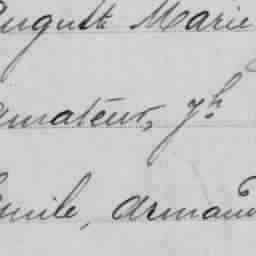 Auguste Marie
Amateur, Jh
Emile, Armand